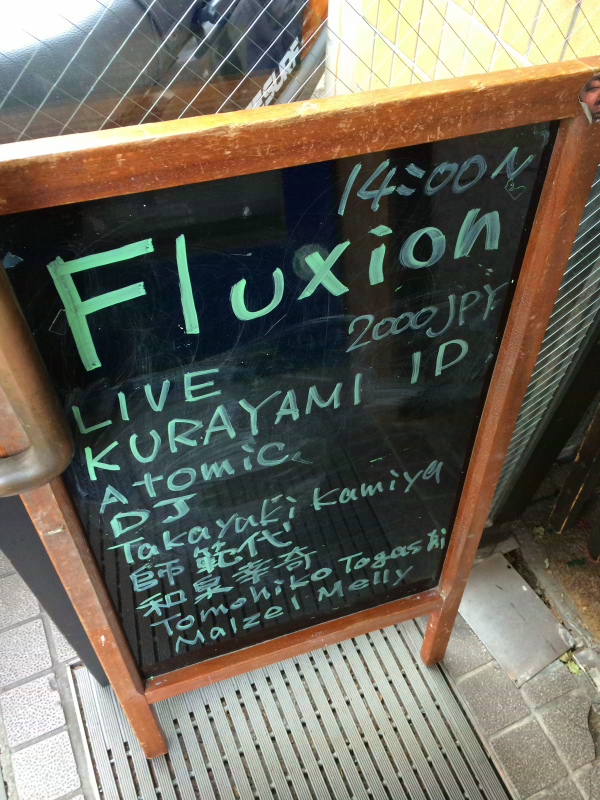 14:00~
Fluxion
2000JPY
LIVE
KURAYAMI ID
Atomic
DJ
Takayuki Kamiya
師範代
和泉幸奇
Tomohiko Togashi
Maizel Melly
SURF